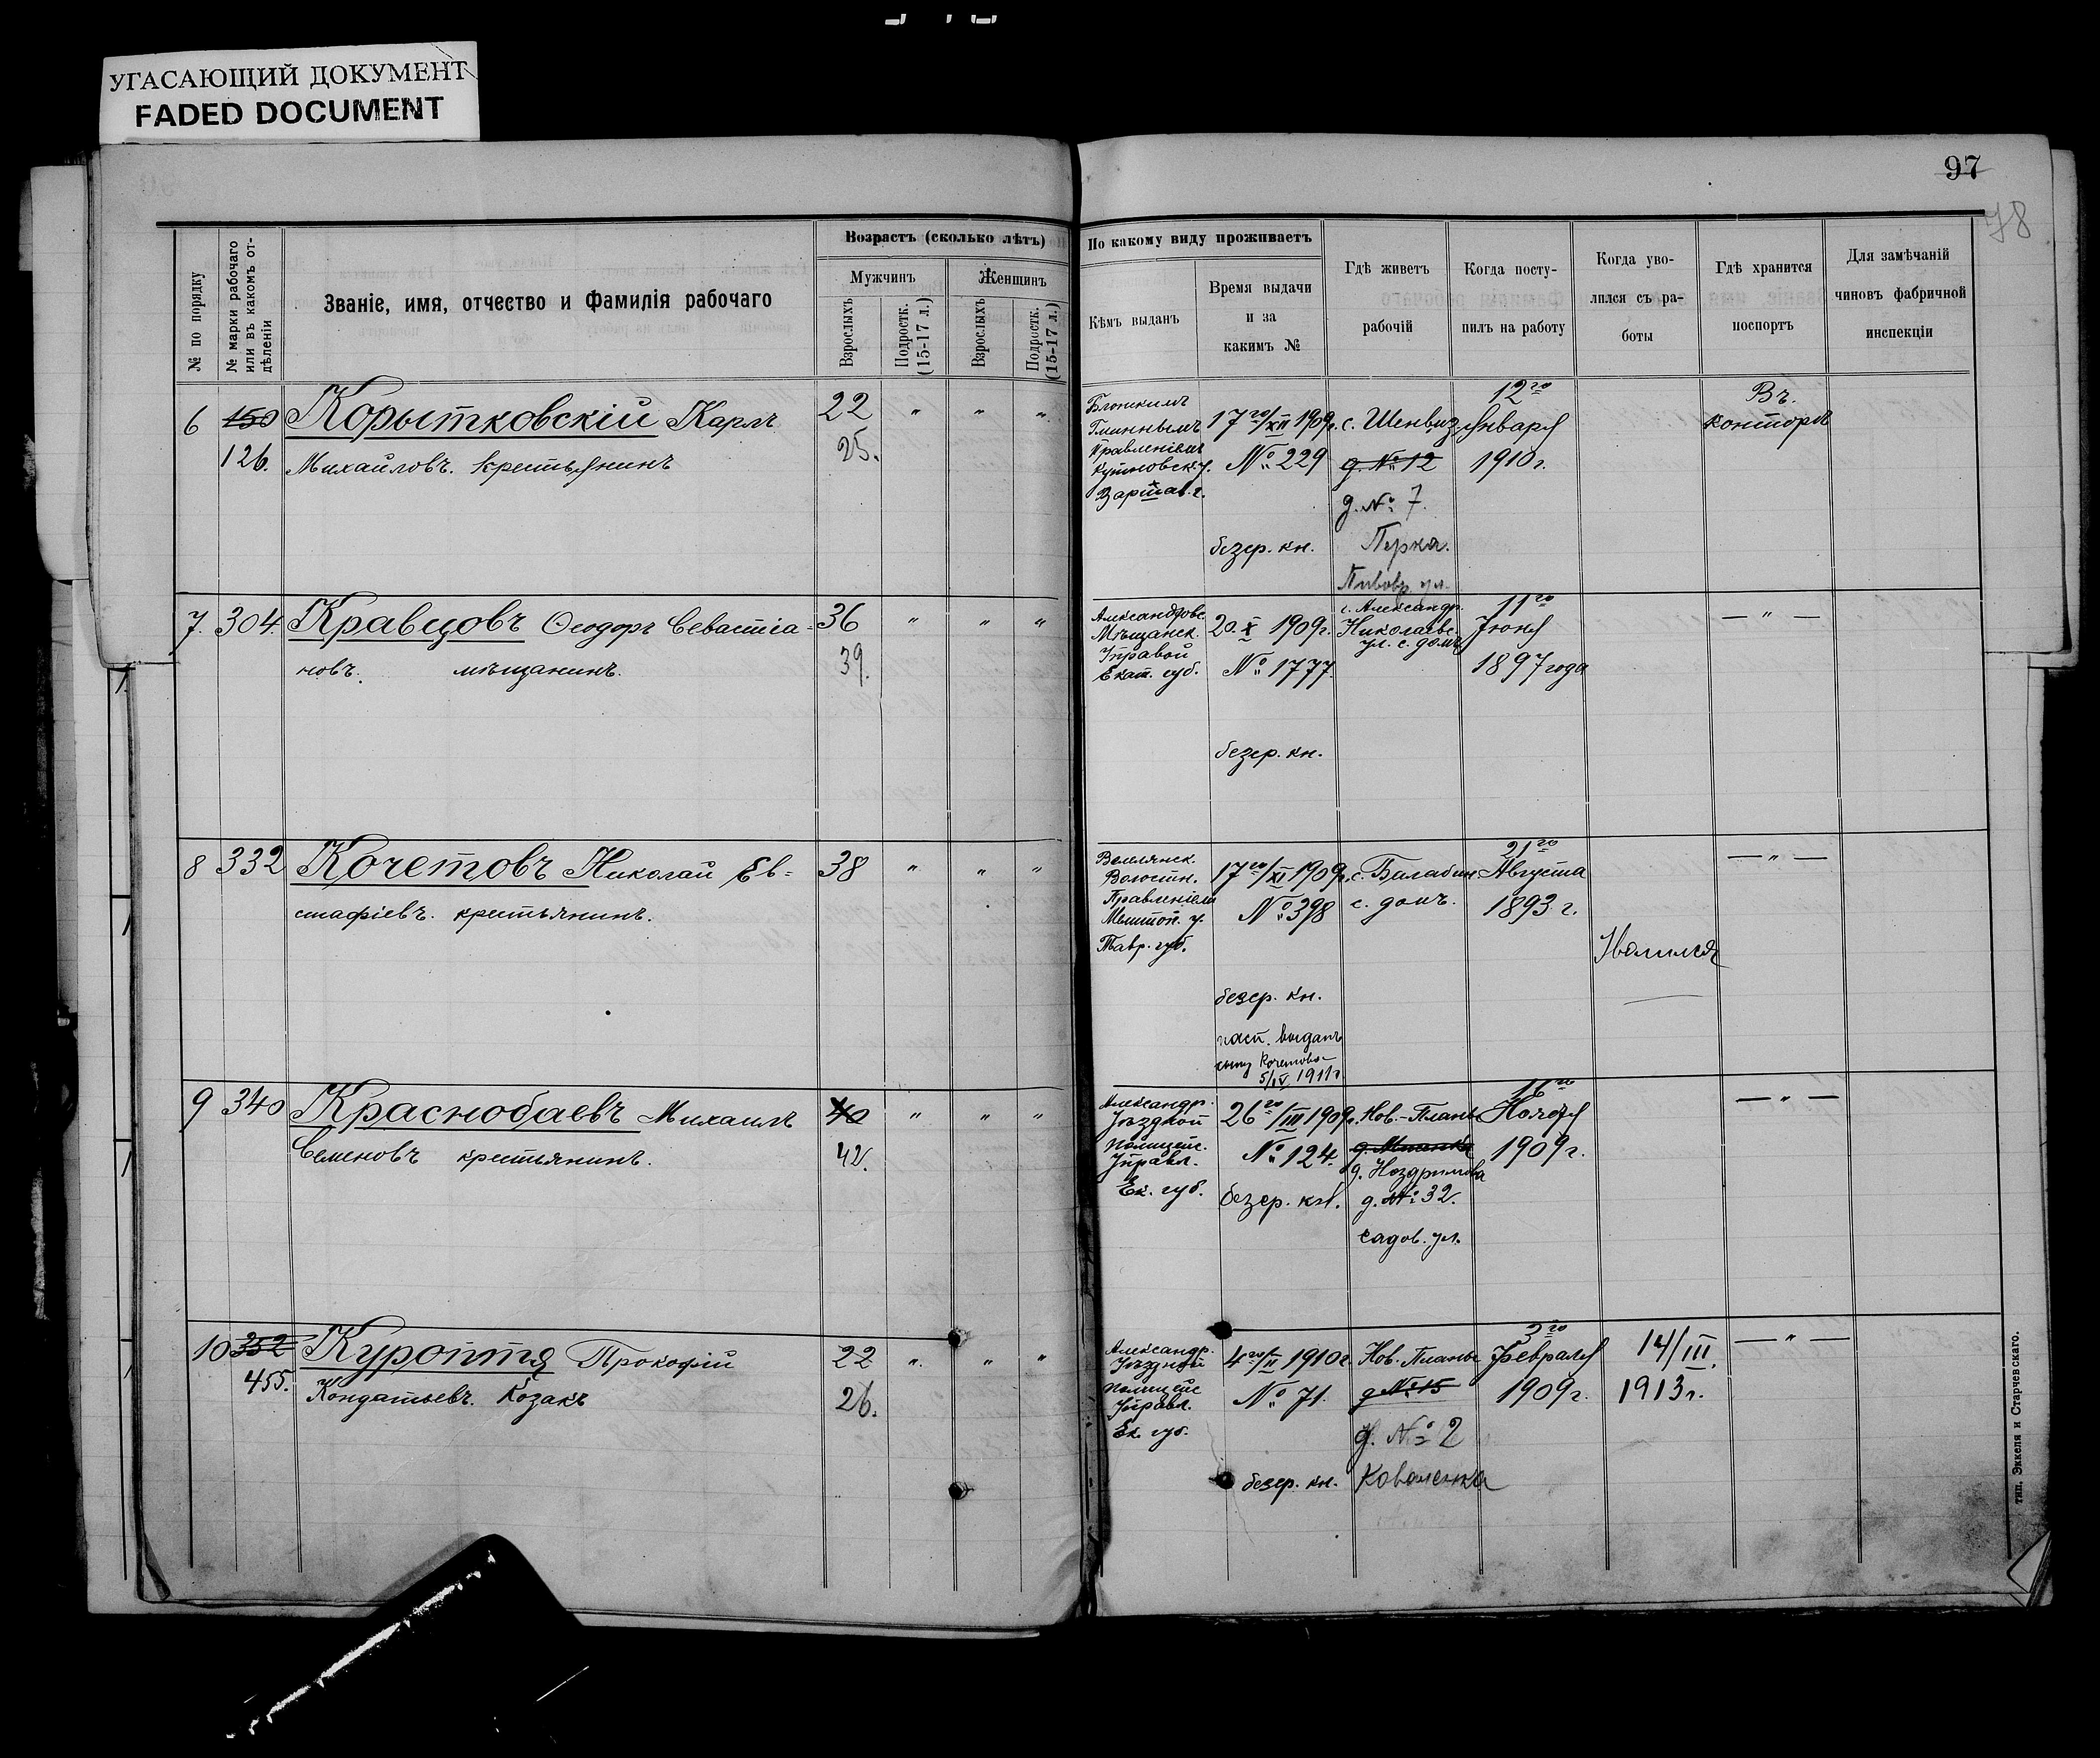 УГАСАЮЩИЙ ДОКУМЕНТ
FADED DOCUMENT
97
78
№ по порядку
№ марки рабочаго
или въ какомъ от-
дѣленіи
Званіе, имя, отчество и фамилія рабочаго
Возрастъ (сколько лѣтъ)
Мужчинъ
Женщинъ
Взрослыхъ
Подростк.
(15-17 л.)
Взрослыхъ
Подростк.
(15-17 л.)
По какому виду проживаетъ
Кѣмъ выданъ
Время выдачи
и за
какимъ №
Гдѣ живетъ
рабочій
Когда посту-
пилъ на работу
Когда уво-
лился съ ра-
боты
Гдѣ хранится
поспортъ
Для замѣчаній
чиновъ фабричной
инспекціи
6
150
126.
Корытковскій Карлъ
Михайловъ. крестьянинъ
22 " " "
25.
Гминнымъ
Правленіемъ
Кутновск. у.
Варшав. г.
17го/XII 1909г.
№ 229
безер. кн.
с. Шенвиз.
д. № 12
д. № 7.
Перка.
Пивов. ул.
12го
Января
1910 г.
Въ.
конторѣ
7. 304.
Кравцовъ Ѳеодоръ Севастіа-
новъ. мѣщанинъ.
36 " " "
39.
Александровс.
Мѣщанск.
Управой
Екат. губ.
20. X 1909г.
№ 1777.
безер. кн.
с. Александр.
Николаевс.
ул. с. домъ
11го
Іюня
1897 года
— " —
8 332
Кочетовъ Николай Ев-
стафіевъ. крестьянинъ.
38 " " "
Волостн.
Правленіем
Мелитоп. у.
Тавр. губ.
17го/XI 1909г.
№ 398
безер. кн.
пасп. выданъ
сыну Кочетова
5/IV 1911г
с. Балабин.
с. домъ.
21го
Августа
1893 г.
Уволился
— " —
9 340
Краснобаевъ Михаилъ
Семеновъ крестьянинъ.
40 " " "
42.
Александр.
Уѣздной
полицейс.
Управл.
Ек. губ.
26го/III 1909г.
№ 124.
безер. кн.
Нов.-Планъ
д. Ноздрикова
д. № 32.
садов. ул.
Ноября
1909 г.
— " —
10 352
455.
Куропття Прокофій
Кондатьевъ. Козакъ
22 ". " "
26.
Александр.
Уѣздной
полицейс
Управл.
Ек. губ.
4го/II 1910г.
№ 71.
безер. кн.
Нов. Планъ
д № 15
д. № 2
Коваленка
3го
Февраля
1909 г.
14/III.
1913 г.
— " —
тип. Эккеля и Старчевскаго.